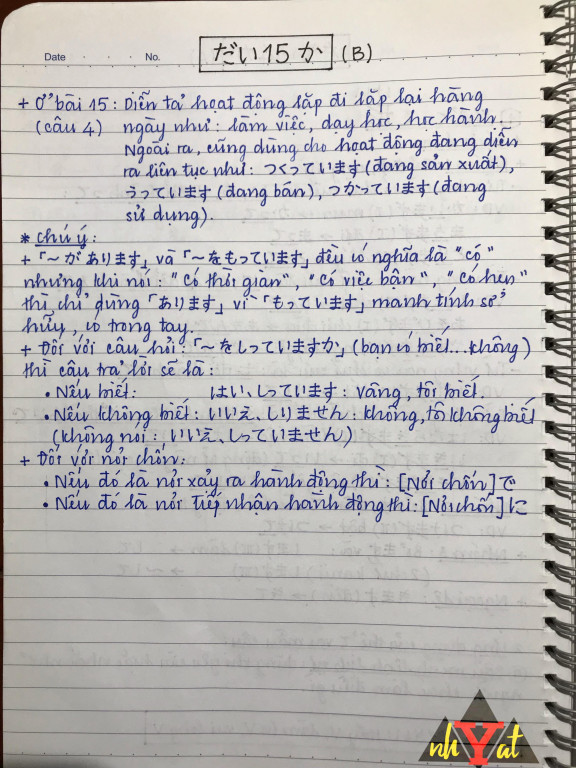 Date . . . No.
だい15か (B)
+ Ở bài 15: Diễn tả hoạt động lặp đi lặp lại hàng
(câu 4) ngày như: làm việc, dạy học, học hành.
Ngoài ra, cũng dùng cho hoạt động đang diễn
ra liên tục như: つくっています (đang sản xuất),
うっています (đang bán), つかっています (đang
sử dụng).
* chú ý:
+ 「～があります」 và 「～をもっています」 đều có nghĩa là "có"
nhưng khi nói: "Có thời gian", "Có việc bận", "Có hẹn"
thì chỉ dùng 「あります」 vì 「もっています」 mang tính sở
hữu, có trong tay.
+ Đối với câu hỏi: 「～をしっていますか」 (bạn có biết...không)
thì câu trả lời sẽ là:
• Nếu biết: はい、しっています: vâng, tôi biết.
• Nếu không biết: いいえ、しりません: không, tôi không biết
(không nói: いいえ、しっていません)
+ Đối với nơi chốn:
• Nếu đó là nơi xảy ra hành động thì: [Nơi chốn] で
• Nếu đó là nơi tiếp nhận hành động thì: [Nơi chốn] に
nhYat